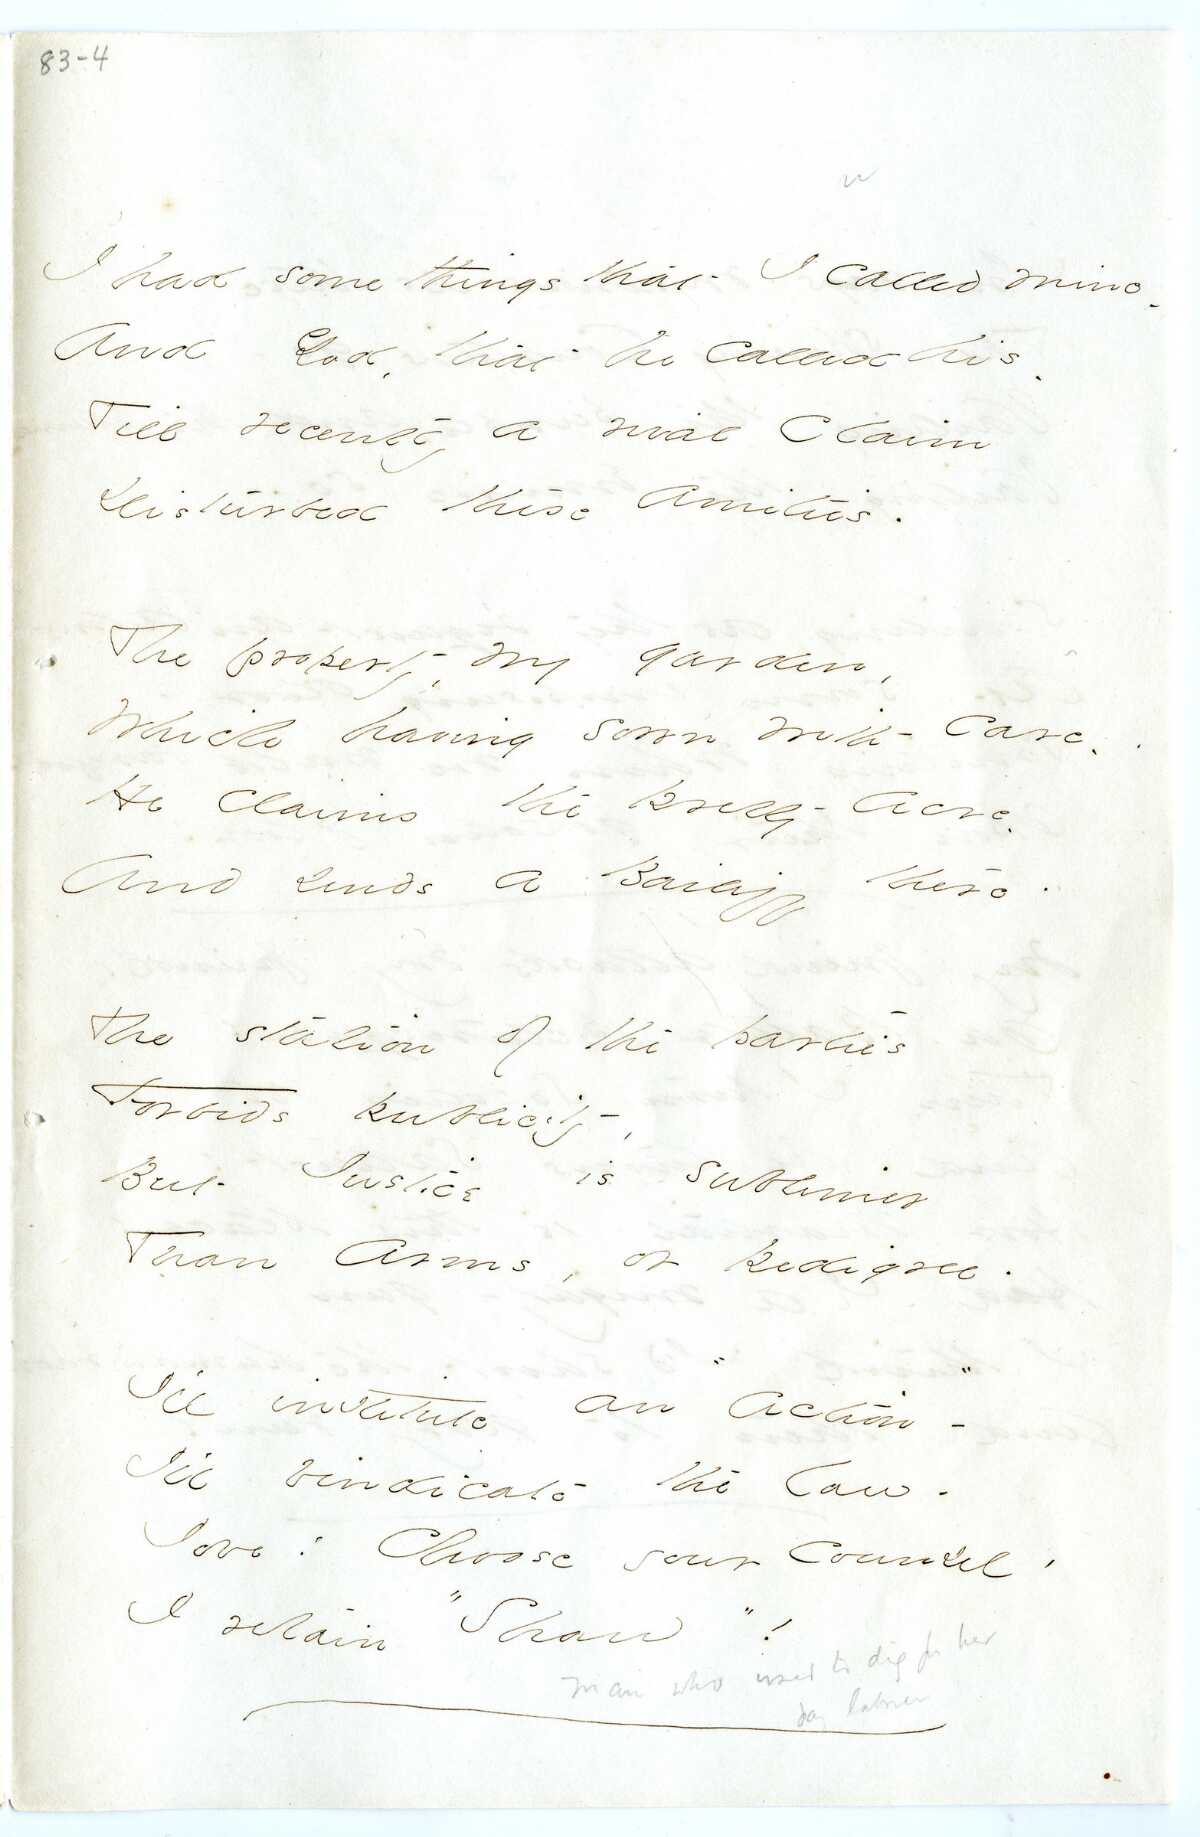 83-4
I had some things that I called mine.
And God, that he called his.
Till recently a rival Claim
Disturbed these amities.
The property, my garden,
Which having sown with care.
He claims the pretty acre.
And sends a Bailiff there.
The station of the parties
Forbids publicity,
But Justice is sublimer
Than Arms, or pedigree.
I'll institute an "Action" -
I'll vindicate the law.
Jove! Choose your Counsel!
I retain "Shaw"!
man who used to dig for her
day laborer